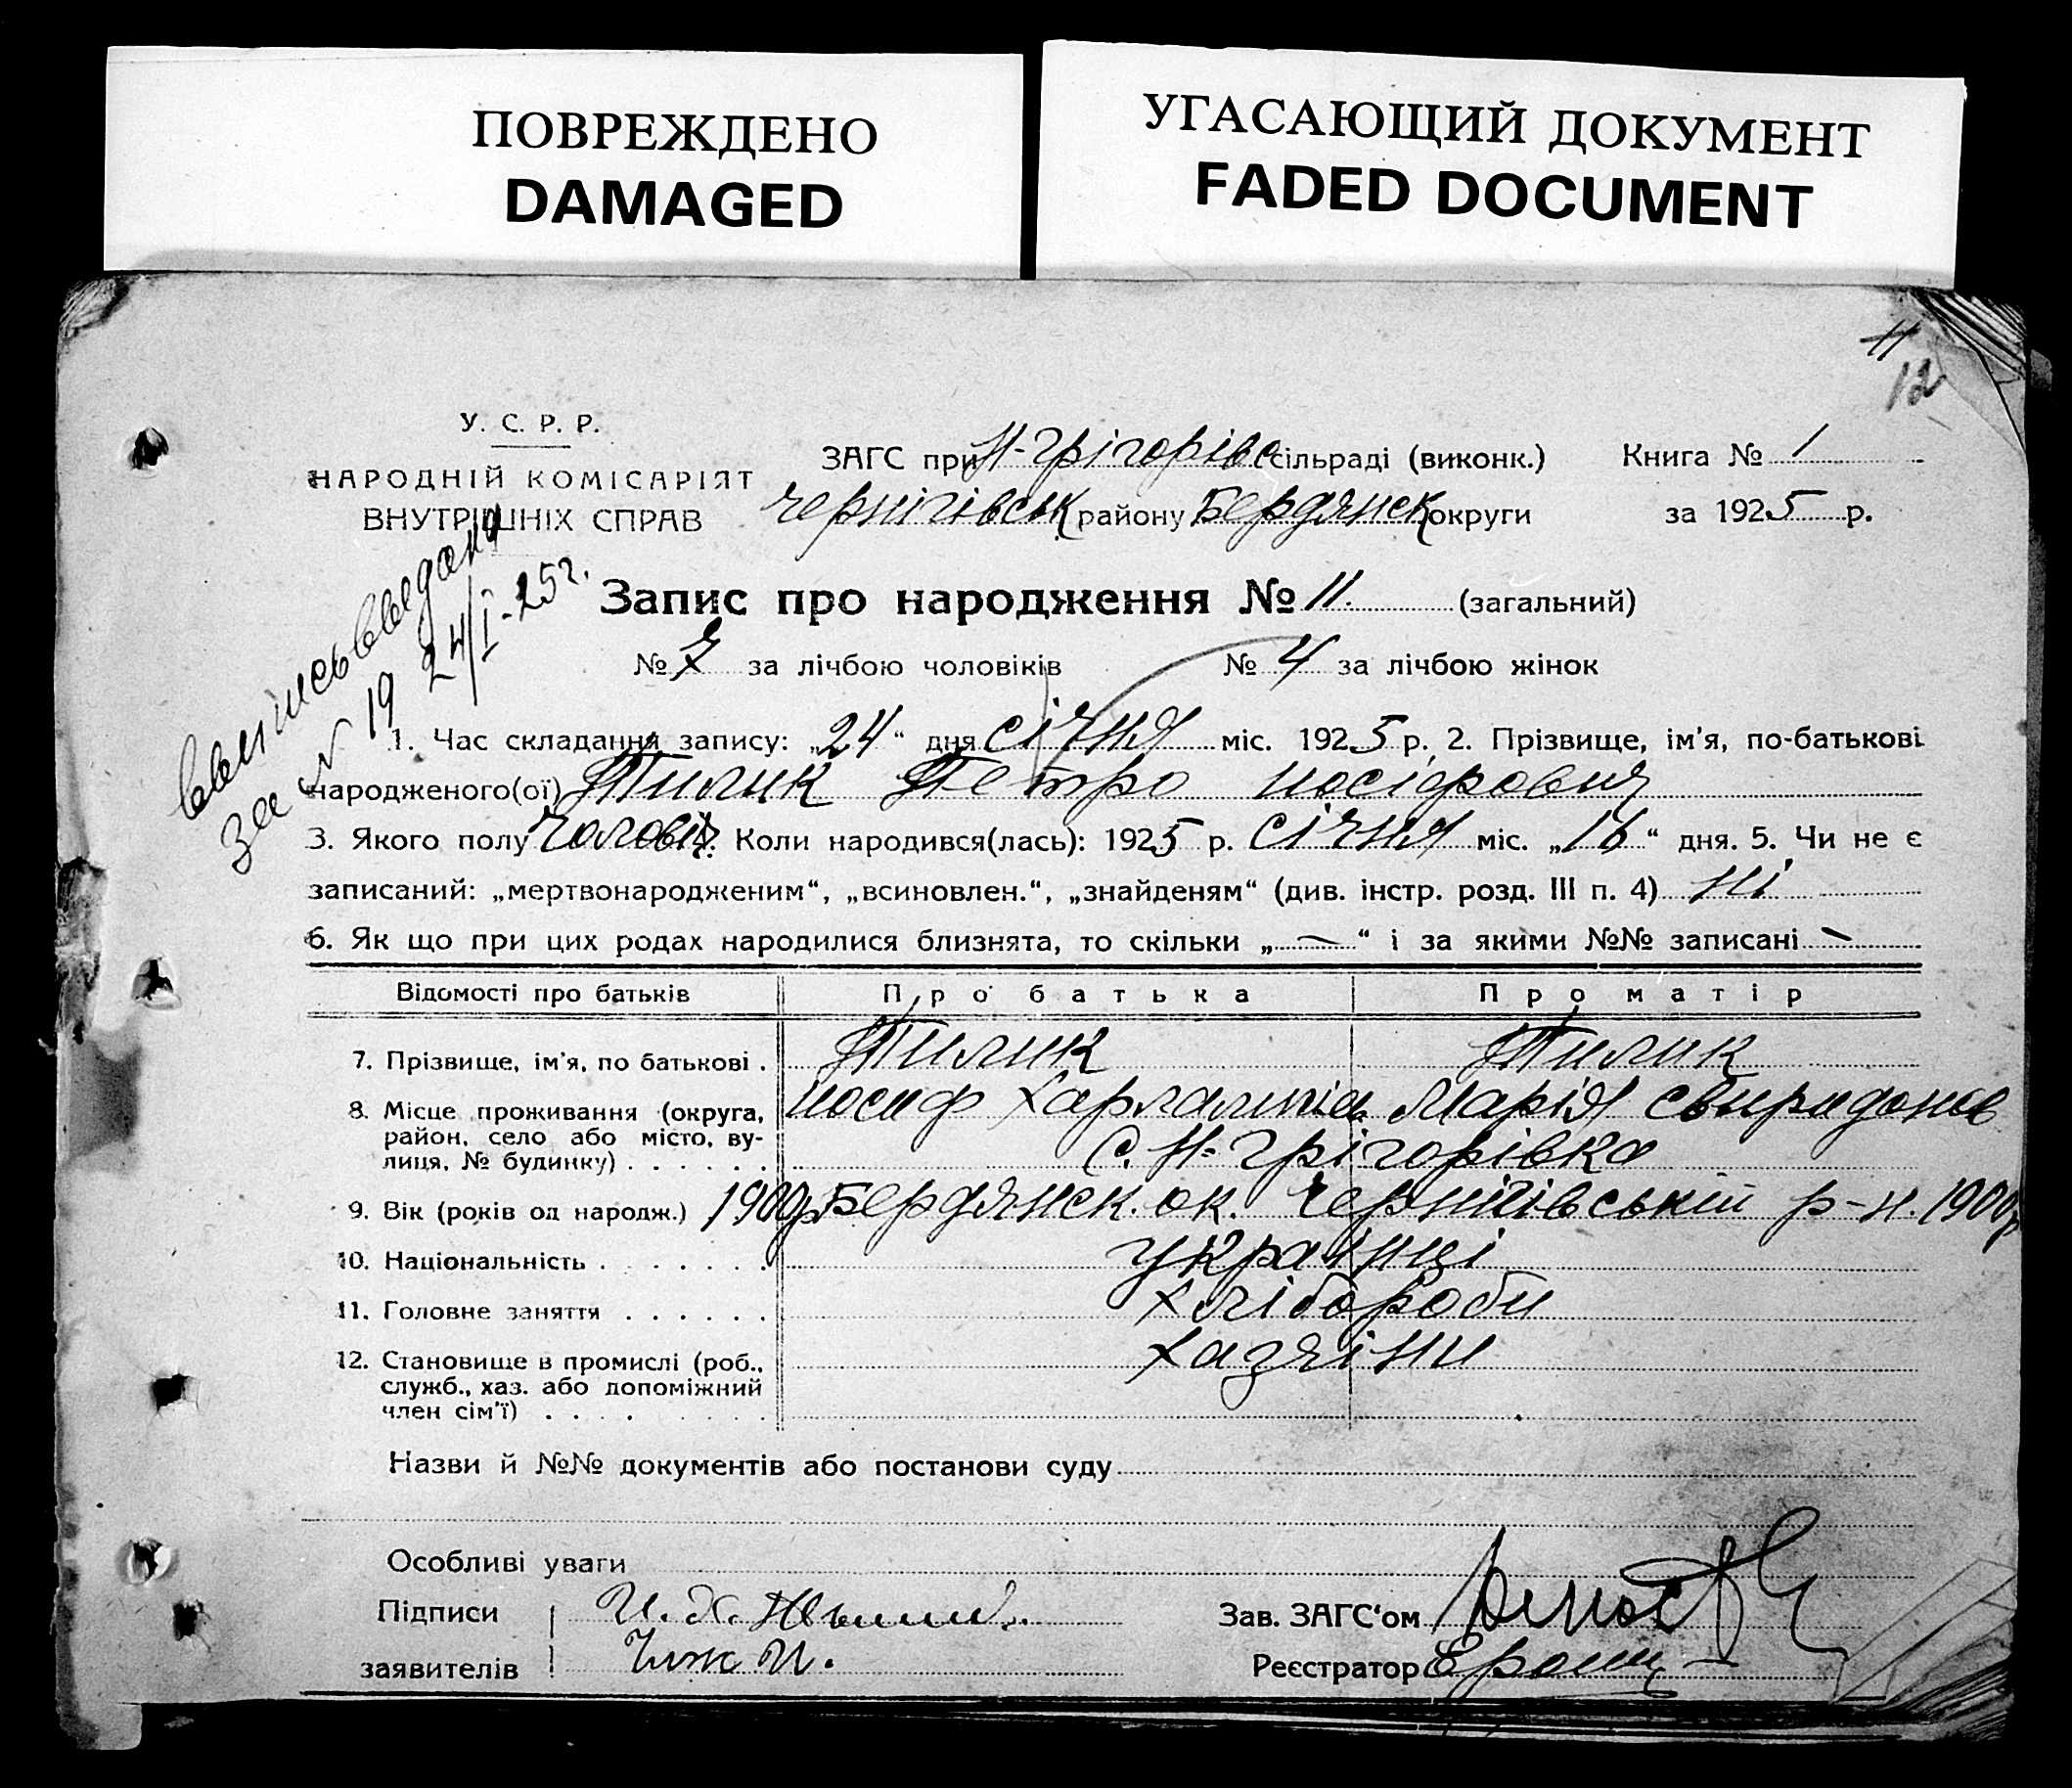 ПОВРЕЖДЕНО
DAMAGED
УГАСАЮЩИЙ ДОКУМЕНТ
FADED DOCUMENT
11
12
У. С. Р. Р.
НАРОДНІЙ КОМІСАРІЯТ
ВНУТРІШНІХ СПРАВ
ЗАГС при Н-Грігорівс сільраді (виконк.) Книга № 1
Чернігівськ району Бердянск округи за 1925 р.
за № 19 24/I-25 г.
Запис про народження № 11. (загальний)
№ 7 за лічбою чоловіків № 4 за лічбою жінок
1. Час складання запису: „24“ дня січня міс. 1925 р. 2. Прізвище, ім'я, по-батькові
народженого(ої) Тилик Петро Иосіфович
3. Якого полу чоловіч. Коли народився(лась): 1925 р. січня міс. „16“ дня. 5. Чи не є
записаний: „мертвонародженим“, „всиновлен.“, „знайденям“ (див. інстр. розд. III п. 4) ні
6. Як що при цих родах народилися близнята, то скільки „—“ і за якими №№ записані —
Відомості про батьків Про батька Про матір
7. Прізвище, ім'я, по батькові . Тилик Тилик
Иосиф Харлампіев Марія Свиридонов
8. Місце проживання (округа,
район, село або місто, ву-
лиця, № будинку) . . . . . . С. Н-Грігорівка
9. Вік (років од народж.) 1900 р Бердянск. ок. Чернігівській р-н. 1900 р
10. Національність . . . . . . . українці
11. Головне заняття . . . . . . хлібороби
12. Становище в промислі (роб., хазяіни
служб., хаз. або допоміжний
член сім'ї) . . . . . . . .
Назви й №№ документів або постанови суду
Особливі уваги
Підписи И. Х.
заявителів И.
Зав. ЗАГС‘ом
Реєстратор